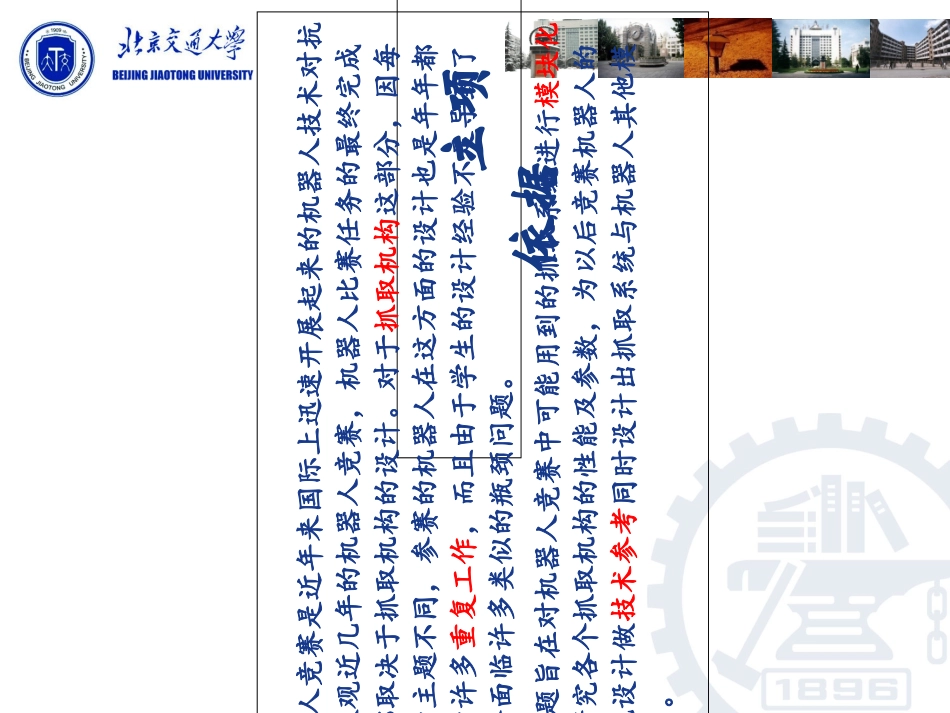 北京交通大学
BEIJING JIAOTONG UNIVERSITY
1909
BEIJING JIAOTONG UNIVERSITY
立项
依据
人竞赛是近年来国际上迅速开展起来的机器人技术对抗
观近几年的机器人竞赛，机器人比赛任务的最终完成
取决于抓取机构的设计。对于抓取机构这部分，因每
主题不同，参赛的机器人在这方面的设计也是年年都
许多重复工作，而且由于学生的设计经验不 了
面临许多类似的瓶颈问题。
题旨在对机器人竞赛中可能用到的抓 进行模块化
究各个抓取机构的性能及参数，为以后竞赛机器人的
设计做技术参考同时设计出抓取系统与机器人其他模
。
1896